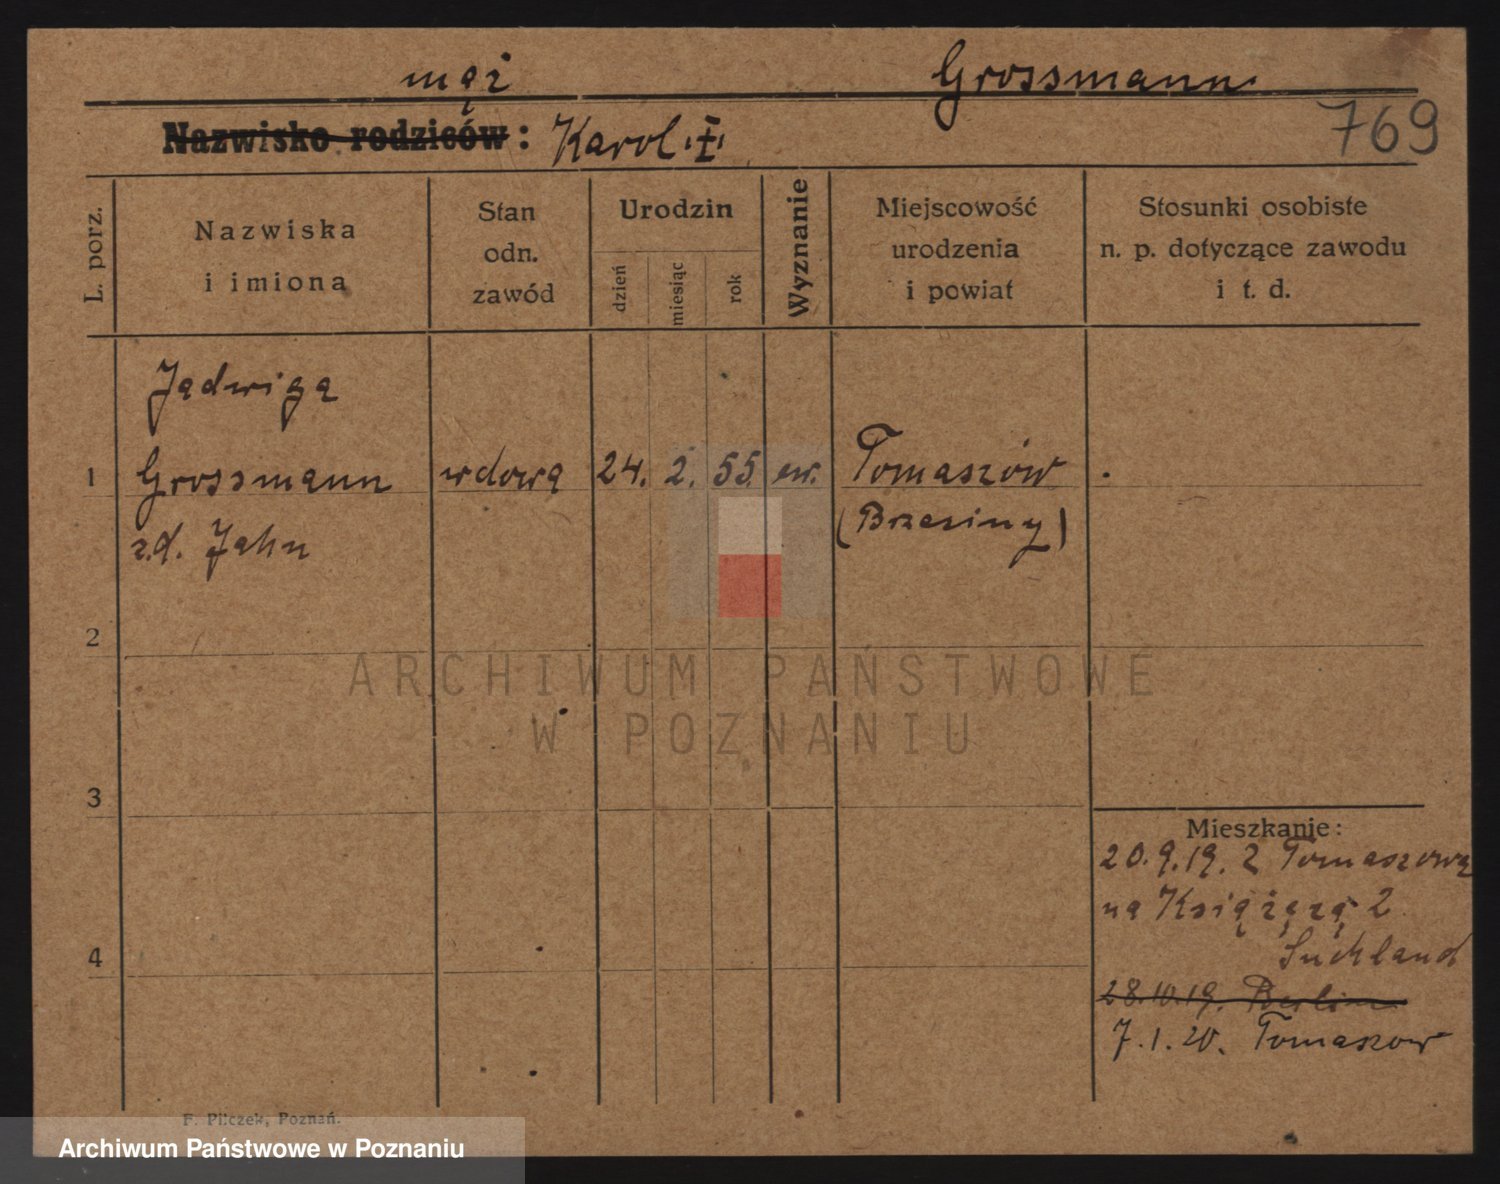 mąż Grossmann
Nazwisko rodziców: Karol I 769
L. porz.
Nazwiska
i imiona
Stan
odn.
zawód
Urodzin
dzień
miesiąc
rok
Wyznanie
Miejscowość
urodzenia
i powiat
Stosunki osobiste
n. p. dotyczące zawodu
i t. d.
Jadwiga
1 Grossmann wdowa 24. 2. 55. ew. Tomaszów
z.d. Jahn (Brzeziny)
2
ARCHIWUM PAŃSTWOWE
W POZNANIU
3
Mieszkanie:
20.9.19. z Tomaszowa
na Książęzą 2
4
28.10.19. Berlin
7.1.20. Tomaszow
F. Pilczek, Poznań.
Archiwum Państwowe w Poznaniu